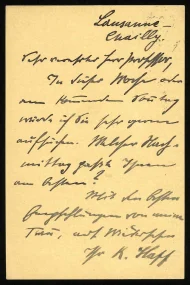 Lausanne –
Chailly.
Sehr verehrter Herr Professor,
In dieser Woche oder
am kommenden Sonntag
würde ich Sie sehr gerne
aufsuchen. Welcher Nach-
mittag paßt Ihnen
am besten?
Mit den besten
Empfehlungen von meiner
Frau, auf Wiedersehen
Ihr K.